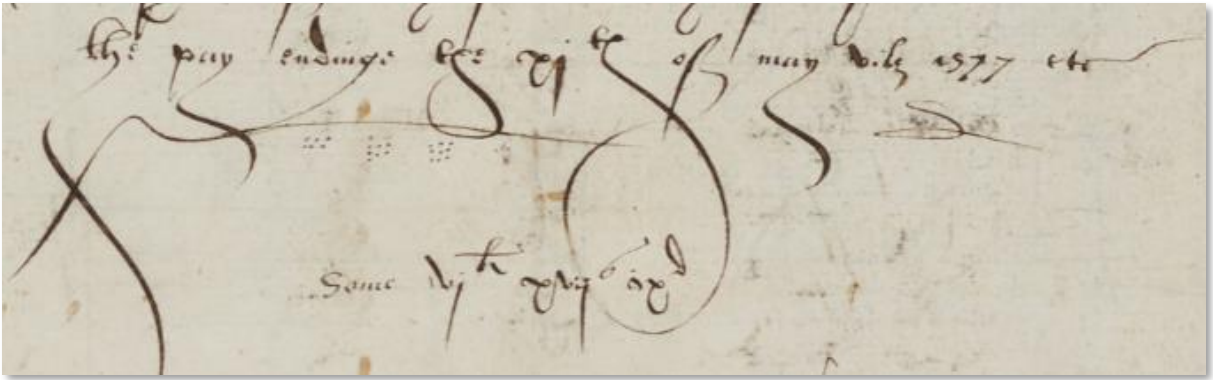 the pay endinge the xj th of may vilz 1577 etc
Some vj li xvij s ix d